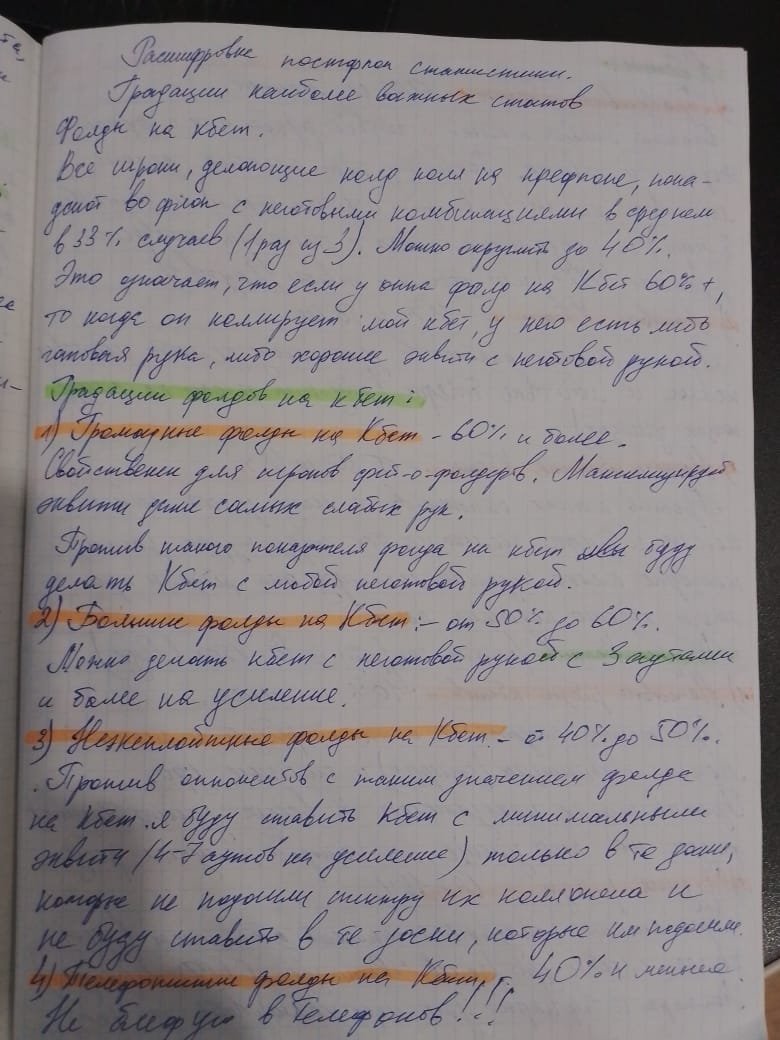 Расшифровка постфлоп статистики.
Градации наиболее важных статов
Фолды на кбет.
Все игроки, делающие колд колл на префлопе, попа-
дают во флоп с неготовыми комбинациями в среднем
в 33% случаев (1 раз из 3). Можно округлить до 40%.
Это означает, что если у оппа фолд на Кбет 60%+,
то когда он коллирует мой кбет, у него есть либо
готовая рука, либо хорошие эквити с неготовой рукой.
Градации фолдов на кбет:
1) Громадные фолды на Кбет - 60% и более.
Свойственен для игроков фит-о-фолдеров. Максимизируй
эквити даже самых слабых рук.
Против такого показателя фолда на кбет буду
делать Кбет с любой неготовой рукой.
2) Большие фолды на Кбет: - от 50% до 60%.
Можно делать кбет с неготовой рукой с 3 аутами
и более на усиление.
3) Неэксплойтные фолды на Кбет - от 40% до 50%.
Против оппонентов с таким значением фолда
на Кбет я буду ставить Кбет с минимальными
эквити (4-7 аутов на усиление) только в те доски,
которые не подошли спектру их коллопена и
не буду ставить в те доски, которые им подошли.
4) Телефонные фолды на Кбет 40% и менее
Не блефую в Телефонов!!!